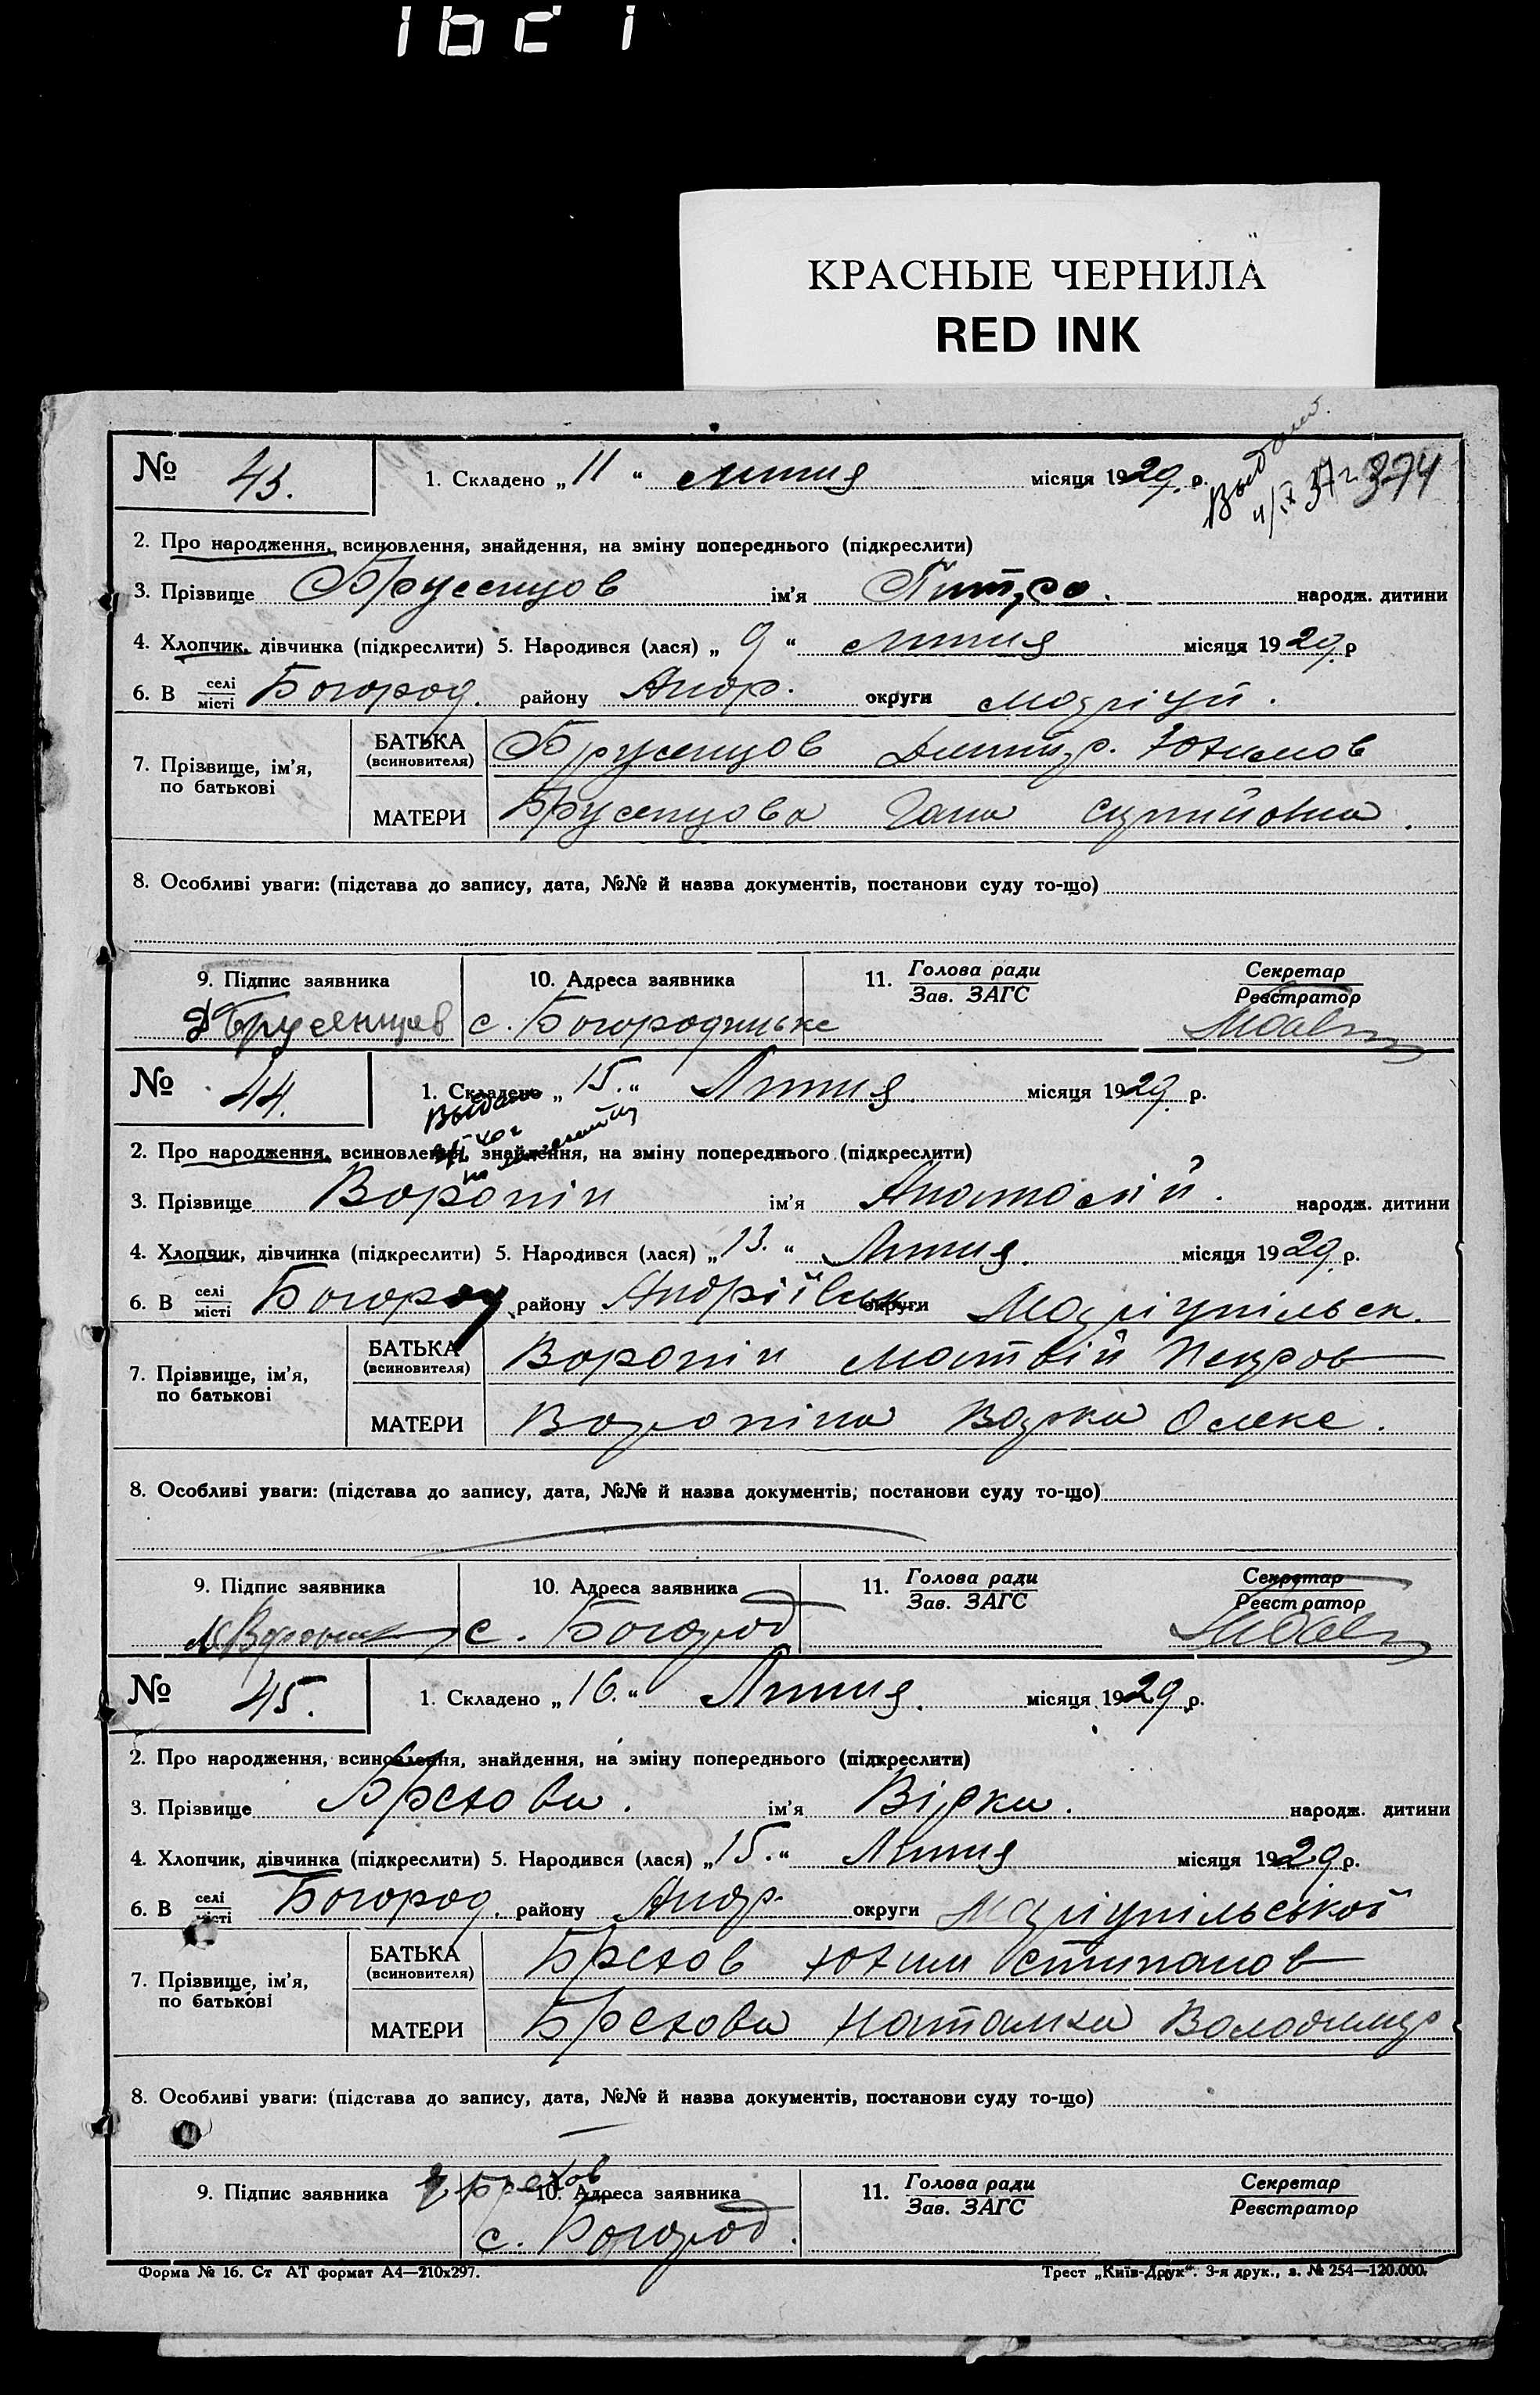 1621
КРАСНЫЕ ЧЕРНИЛА
RED INK
№ 43. 1. Складено „ 11 “ липня місяця 1929 р. Выдано 37 г. 374
2. Про народження, всиновлення, знайдення, на зміну попереднього (підкреслити)
3. Прізвище Брусенцов ім’я Питро. народж. дитини
4. Хлопчик, дівчинка (підкреслити) 5. Народився (лася) „ 9 “ липня місяця 1929 р
6. В селі місті Богород. району Андр. округи Маріуп.
7. Прізвище, ім’я, по батькові
БАТЬКА (всиновителя) Брусенцов Дмитр. Юхимов
МАТЕРИ Брусенцова Гана
8. Особливі уваги: (підстава до запису, дата, №№ й назва документів, постанови суду то-що)
9. Підпис заявника 10. Адреса заявника 11. Голова ради Зав. ЗАГС Секретар Реєстратор
Д Брусенцев с. Богородицьке
№ 44. 1. Складено „ 15. “ Липня місяця 1929 р.
Выдано
2. Про народження, всиновлення, знайдення, на зміну попереднього (підкреслити)
3. Прізвище Воронін ім’я Анатолій. народж. дитини
4. Хлопчик, дівчинка (підкреслити) 5. Народився (лася) „ 13. “ Липня. місяця 1929 р.
6. В селі місті Богород. району Андріївськ округи Маріупільськ.
7. Прізвище, ім’я, по батькові
БАТЬКА (всиновителя) Воронін Матвій Петров
МАТЕРИ Вороніна Варка Олекс.
8. Особливі уваги: (підстава до запису, дата, №№ й назва документів, постанови суду то-що)
9. Підпис заявника 10. Адреса заявника 11. Голова ради Зав. ЗАГС Секретар Реєстратор
М Воронин с. Богород
№ 45. 1. Складено „ 16. “ Липня. місяця 1929 р.
2. Про народження, всиновлення, знайдення, на зміну попереднього (підкреслити)
3. Прізвище Брехова. ім’я Вірка. народж. дитини
4. Хлопчик, дівчинка (підкреслити) 5. Народився (лася) „ 15. “ Липня місяця 1929 р.
6. В селі місті Богород. району Андр. округи Маріупільської
7. Прізвище, ім’я, по батькові
БАТЬКА (всиновителя) Брехов Юхим Стипанов
МАТЕРИ Брехова Наталка Володимир
8. Особливі уваги: (підстава до запису, дата, №№ й назва документів, постанови суду то-що)
9. Підпис заявника Брехов 10. Адреса заявника 11. Голова ради Зав. ЗАГС Секретар Реєстратор
с. Богород.
Форма № 16. Ст АТ формат А4—210х297. Трест „Київ-Друк“. 3-я друк., з. № 254—120.000.